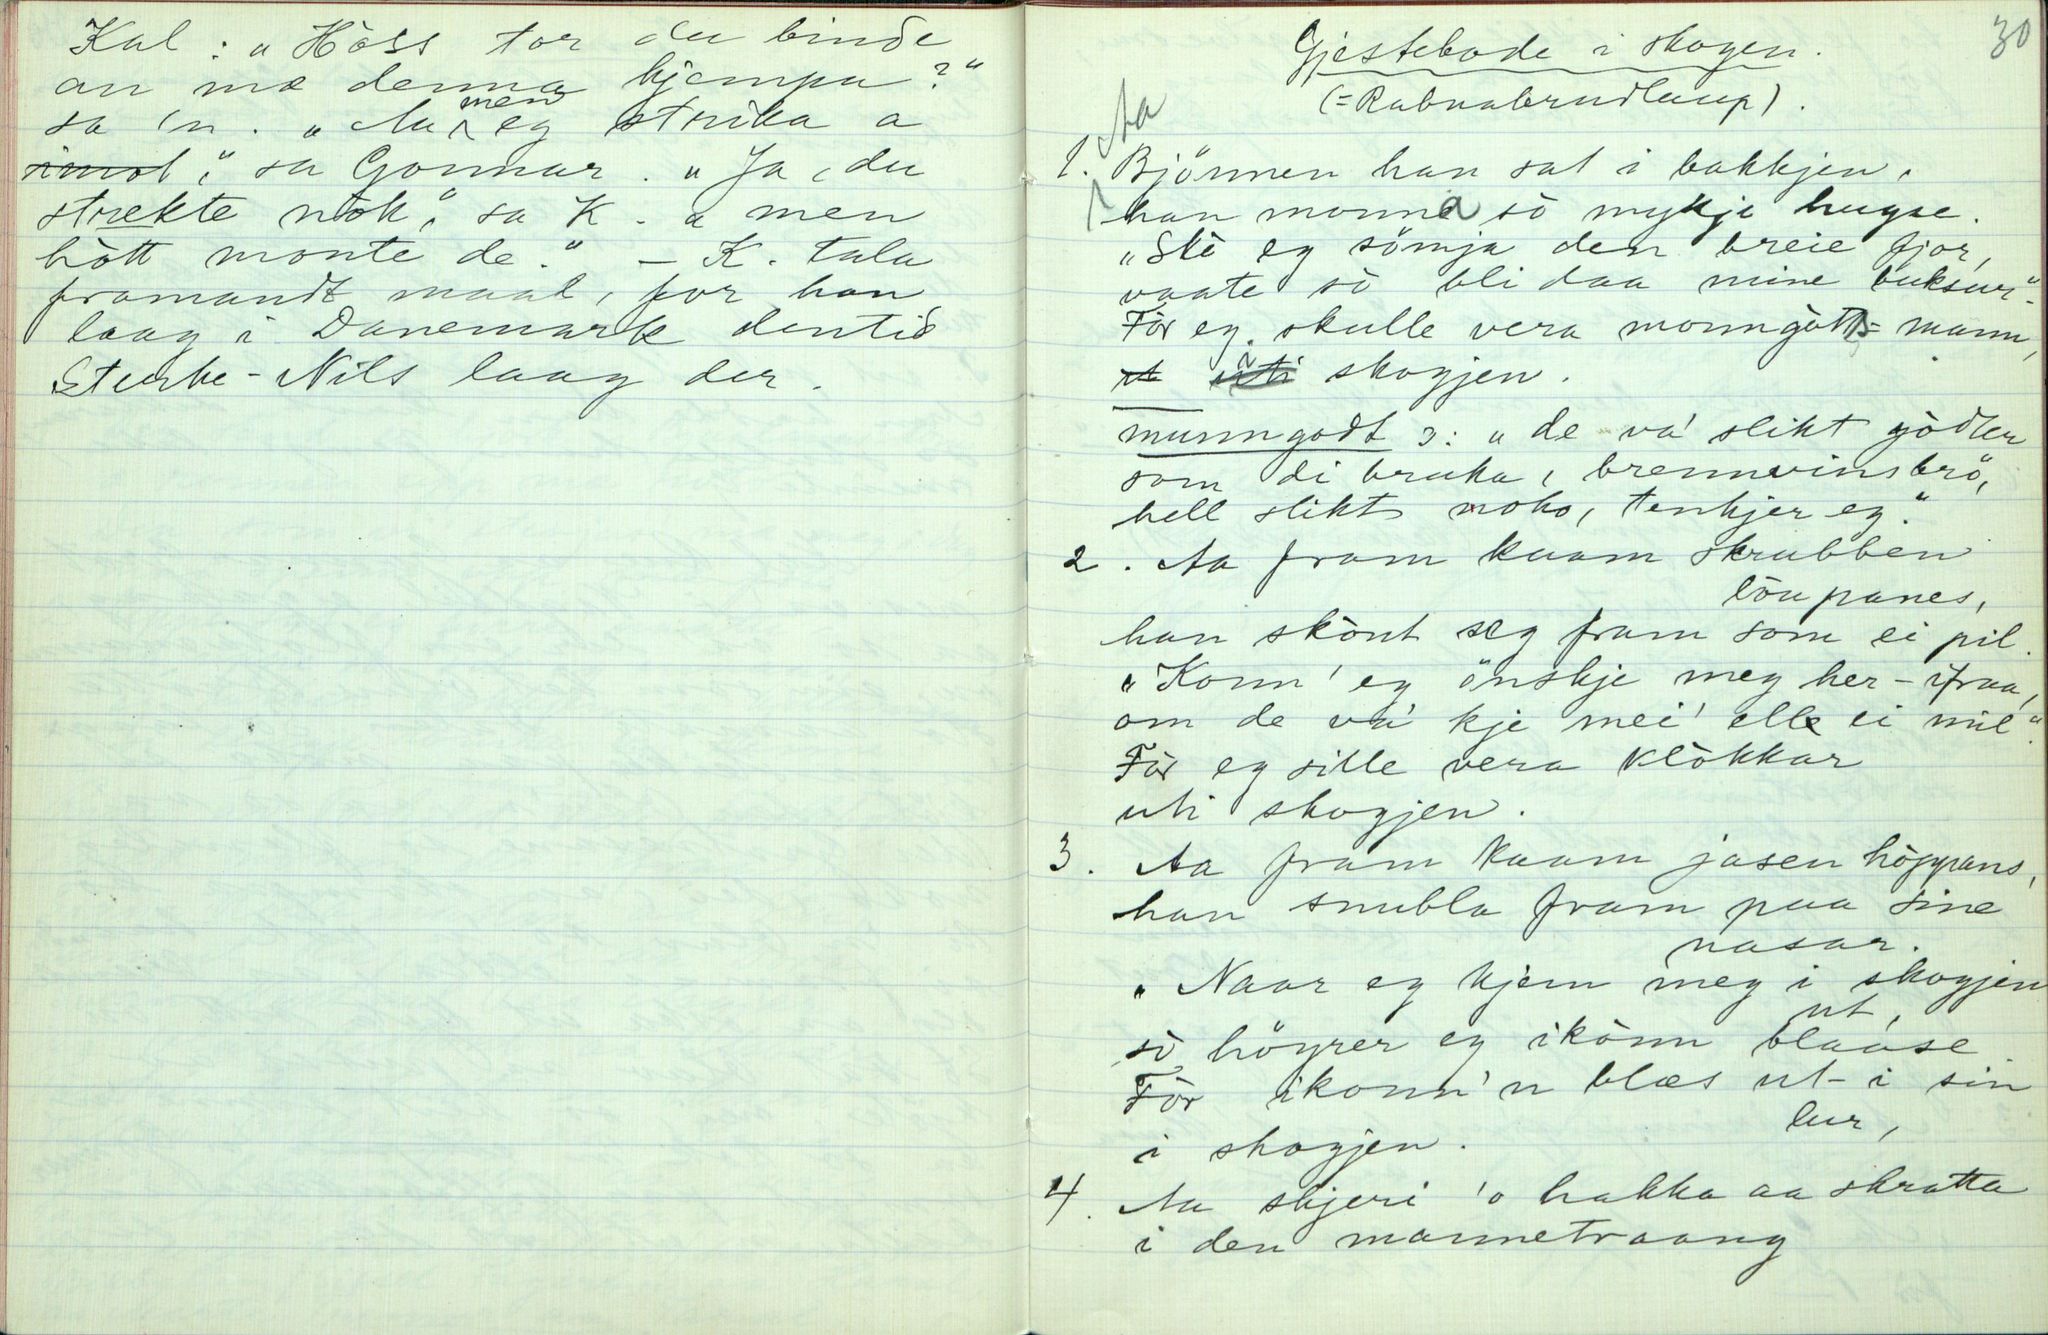 Kal: „Hòss tor du binde
an mæ denna kjempa?"
sa 'n. „Au men eg strika a
imot", sa Gonnar. „Ja, du
strekte nòk", sa K. „men
hòtt monte de." — K. tala
framandt maal, for han
laag i Danemark dentid
Sterke-Nils laag der.
30
Gjestebode i skogen.
(= Rabnabrudlaup).
Aa
1. Bjönnen han sat i bakkjen,
han monna sò mykje hugse.
„Skò eg sömja den breie fjor,
vaate sò bli daa mine buksur"-
Fòr eg skulle vera monngòtts-mann,
i skogjen.
munngodt ɔ: „de va' slikt gòdter
som di bruka, brennvinsbrö,
hell slikt noko, tenkjer eg."
2. Aa fram kaam skrubben
löupanes,
han skònt seg fram som ei pil.
„Konn' eg önskje meg her-ifraa,
om de va' kje mei' elle ei mil".
Fòr eg sille vera klòkkar
uti skogjen.
3. Aa fram kaam jasen hòppans,
han snubla fram paa sine
nasar.
„Naar eg kjem meg i skogjen
ut,
sò höyrer eg ikònn blaase.
Fòr ikonn'n blæs ut-i sin
lur,
i skogjen.
4. Aa skjeri 'o hakka aa skratta
i den mannetraang